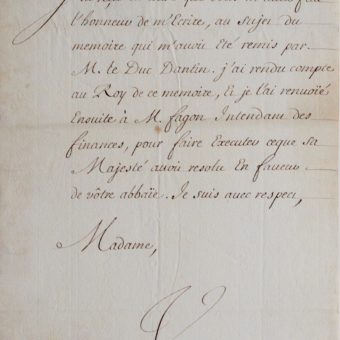 l'honneur de m'Ecrire, au sujet du
memoire qui m'avoit Eté remis par
M. le Duc Dantin. j'ai rendu compte
au Roy de ce memoire, Et je l'ai renvoïé
Ensuite à M. fagon Intendant des
finances, pour faire Executer ceque sa
Majesté avoit resolu En faveur
de vôtre abbaïe. Je suis avec respect,
Madame,